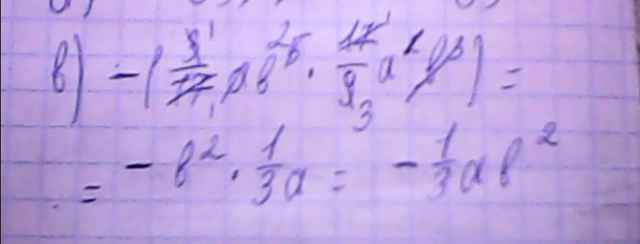 в) -(3/17 ab⁵ · 17/9 a² b³) =
= - b² · 1/3 a = - 1/3 a b²